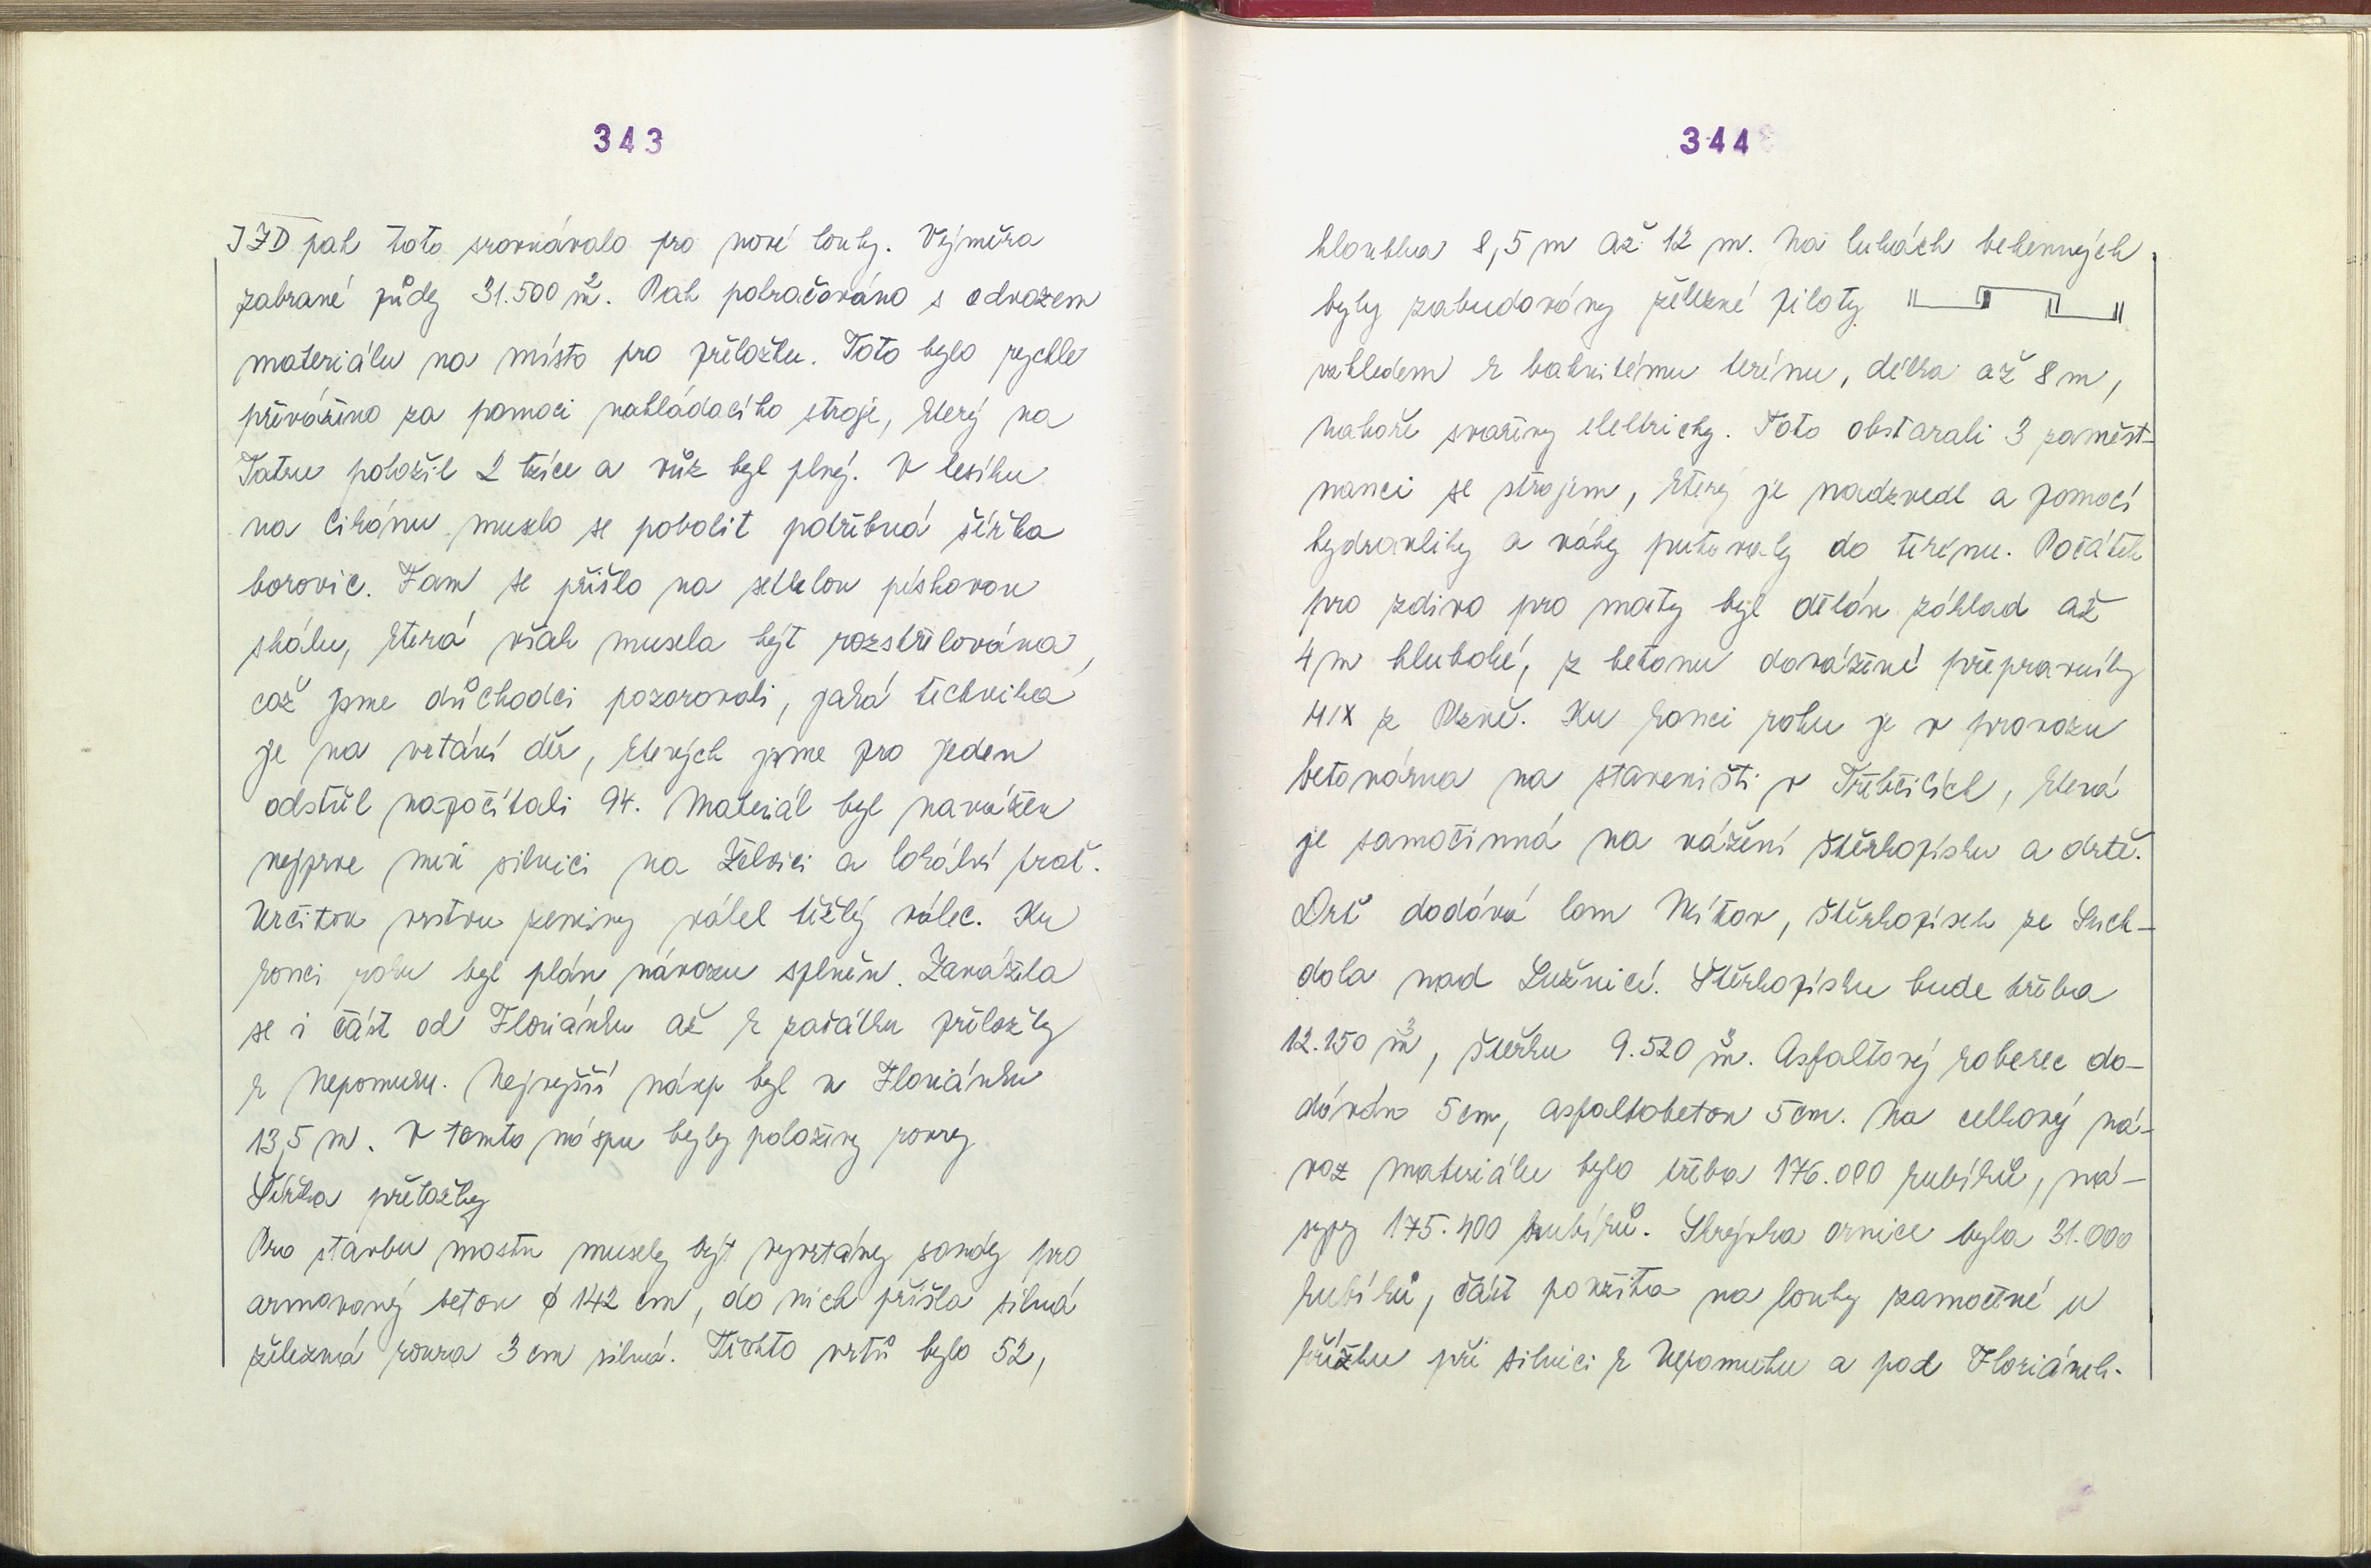 343
JZD pak toto srovnávalo pro nové louky. Výměra
zabrané půdy 31.500 m². Pak pokračováno s odvozem
materiálu na místo pro přeložku. Toto bylo rychle
převáženo za pomoci nakládacího stroje, který na
Tatru položil 2 lžíce a vůz byl plný. V lesíku
na Cikánu muselo se pokolit potřebná šířka
borovic. Tam se přišlo na setlelou pískovou
skálu, která však musela být rozstřelována,
což jsme důchodci pozorovali, jaká technika
je na vrtání děr, kterých jsme pro jeden
odstřel napočítali 94. Materiál byl navážen
nejprve mezi silnici na Želvici a lokální trať.
Určitou vrstvu zeminy válel těžký válec. Ku
konci roku byl plán návozu splněn. Zavážela
se i část od Floriánku až k začátku přeložky
k Nepomuku. Nejvyšší násep byl u Floriánku
13,5 m. V tomto náspu byly položeny roury
Šířka přeložky
Pro stavbu mostu musely být vyvrtány sondy pro
armovaný beton ø 142 cm, do nich přišla silná
železná roura 3 cm silná. Těchto vrtů bylo 52,
344
hloubka 8,5 m až 12 m. Na lukách
byly zabudovány želežné piloty
vzhledem k bahnitému terénu, délka až 8 m,
nahoře svařeny elektricky. Toto obstarali 3 zaměst-
nanci se strojem, který je nadzvedl a pomocí
hydravliky a váhy putovaly do terénu. Počátek
pro zdivo pro mosty byl dělán základ až
4 m hluboké, z betonu dovážené přepravníky
MIX z Plzně. Ku konci roku je v provozu
betonárna na staveništi v Třebčicích, která
je samočinná na vážení štěrkopísku a drtě.
Drť dodává lom Mítov, štěrkopísek ze Such-
dola nad Lužnicí. Štěrkopísku bude třeba
12.150 m³, štěrku 9.520 m³. Asfaltový koberec do-
dáván 5 cm, asfaltobeton 5 cm. Na celkový ná-
voz materiálu bylo třeba 176.000 kubíků, ná-
sypy 175.400 kubíků. Skrývka ornice byla 31.000
kubíků, část použita na louky zamočené u
křížku při silnici k Nepomuku a pod Floriánek.